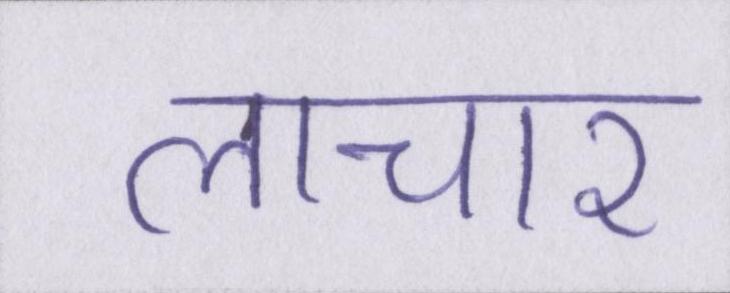 लाचार